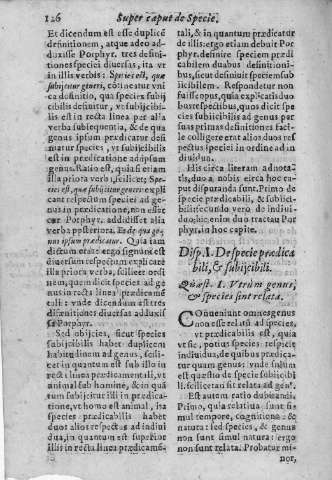 126 Super caput de Specie.
Et dicendum est esse duplicē
definitionem, atque adeo ad-
duxisse Porphyr. tres defini-
tiones speciei diuersas, ita vt
in illis verbis: Species est, quæ
subijcitur generi, contineatur vni-
ca definitio, qua species subij-
cibilis definitur, vt subijcibi-
lis est in recta linea per alia
verba subsequentia, & de qua
genus ipsum prædicatur desi-
natur species, vt subijcibilis
est in prædicatione ad ipsum
genus. Ratio est, quia si etiam
illa priora verba, scilicet; Spe-
cies est, quæ subijcitur generi: expli-
cant respectum speciei ad ge-
nus in prædicatione, non esset
cur Porphyr. addidisset alia
verba posteriora. Et de qua ge-
nus ipsum prædicatur. Quia iam
dictum erat: ergo signum est
diuersum respectum explicare
illa priora verba, scilicet ordi-
nem, quem dicit species ad ge
nus in recta linea prædicamē-
tali: vnde dicendum est tres
definitiones diuersas adduxis
se Porphyr.
Sed subijcies, sicut species
subijcibilis habet duplicem
habitudinem ad genus, scili-
cet in quantum est sub illo in
recta linea prædicamentali, vt
animal sub homine, & in quā
tum subijcitur illi in prædica-
tione, vt homo est animal, ita
species prædicabilis habet
duos respectus ad indiui
dua, in quantum est superior
illis in recta linea prædicamē-
tali, & in quantum prædicatur
de illis: ergo etiam debuit Por
phyr. definire speciem prædi
cabilem duabus definitioni-
bus, sicut definiuit speciem sub
ijcibilem. Respondetur non
fuisse opus, quia explicatis duo
bus respectibus, quos dicit spe
cies subijcibilis ad genus per
suas primas definitiones faci-
le colligere erat alios duos res
pectus speciei in ordine ad in
diuiduum.
His circa literam adnota-
tis, duo a nobis circa hoc ca-
put disputanda sunt. Primo de
specie prædicabili, & subijci-
bili: secundo vero de indiui
duo, hic enim duo tractat Por
phyr. in hoc capite.
Disp. I. De specie prædica
bili, & subijcibili.
Quæst. I. Vtrum genus,
& species sint relata.
COnueniunt omnes genus
non esse relatū ad species,
vt prædicabilis est, quia
vt sic, potius species respicit
indiuidua, de quibus prædica-
tur quam genus: vnde solum
est difficultas de specie subijcibi
li, scilicet an sit relata ad genꝰ.
Est autem ratio dubitandi.
Primo, quia relatiua sunt si-
mul tempore, cognitione &
natura: sed species, & genus
non sunt simul natura: ergo
non sunt relata. Probatur mi-
nor,